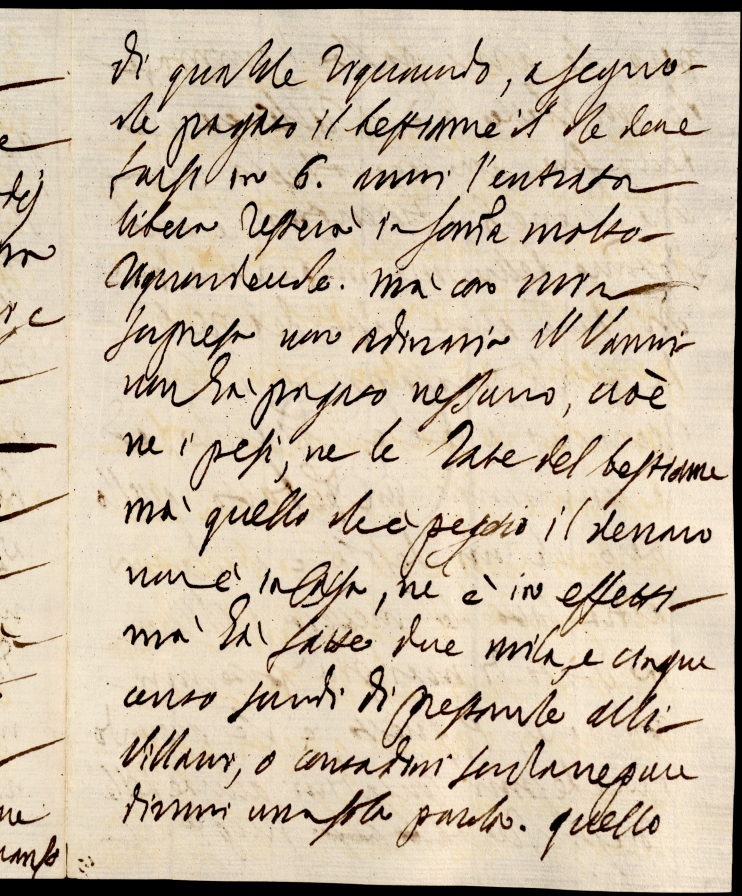 di qualche riguardo, a segno
che pagato il bestiame il che deve
farsi in 6. anni l'entrata
libera resterà in somᵃ molto
riguardevole. mà con mia
sorpresa non ordinaria il Vanni
non hà pagato nessuno, cioè
ne i pesi, ne le rate del bestiame
mà quello che è peggio il denaro
non è in cassa, ne è in effetti
mà hà fatte due mila, e cinque
cento scudi di prestanze alli
Villani, o contadini senza ne pure
dirmi una sola parola. quello